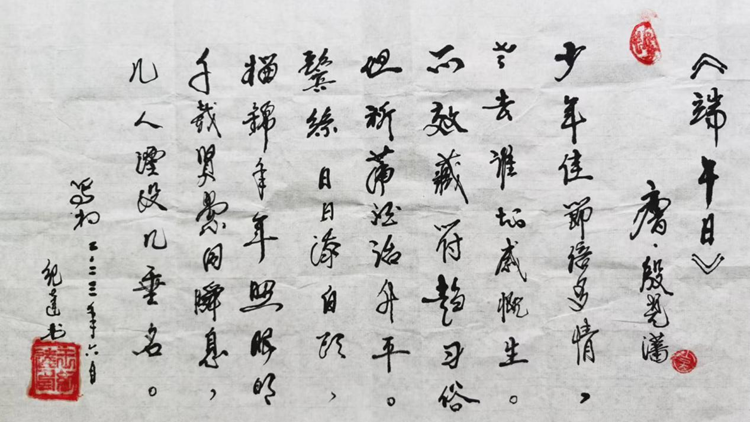 《端午日》
唐·殷尧藩
少年佳節倍多情，
老去谁知感慨生。
不效藏符趋习俗
但祈蒲酒话升平。
鬓絲日日添白头，
榴錦年年照眼明
千载贤愚同瞬息，
几人湮没几垂名。
二〇二三年六月